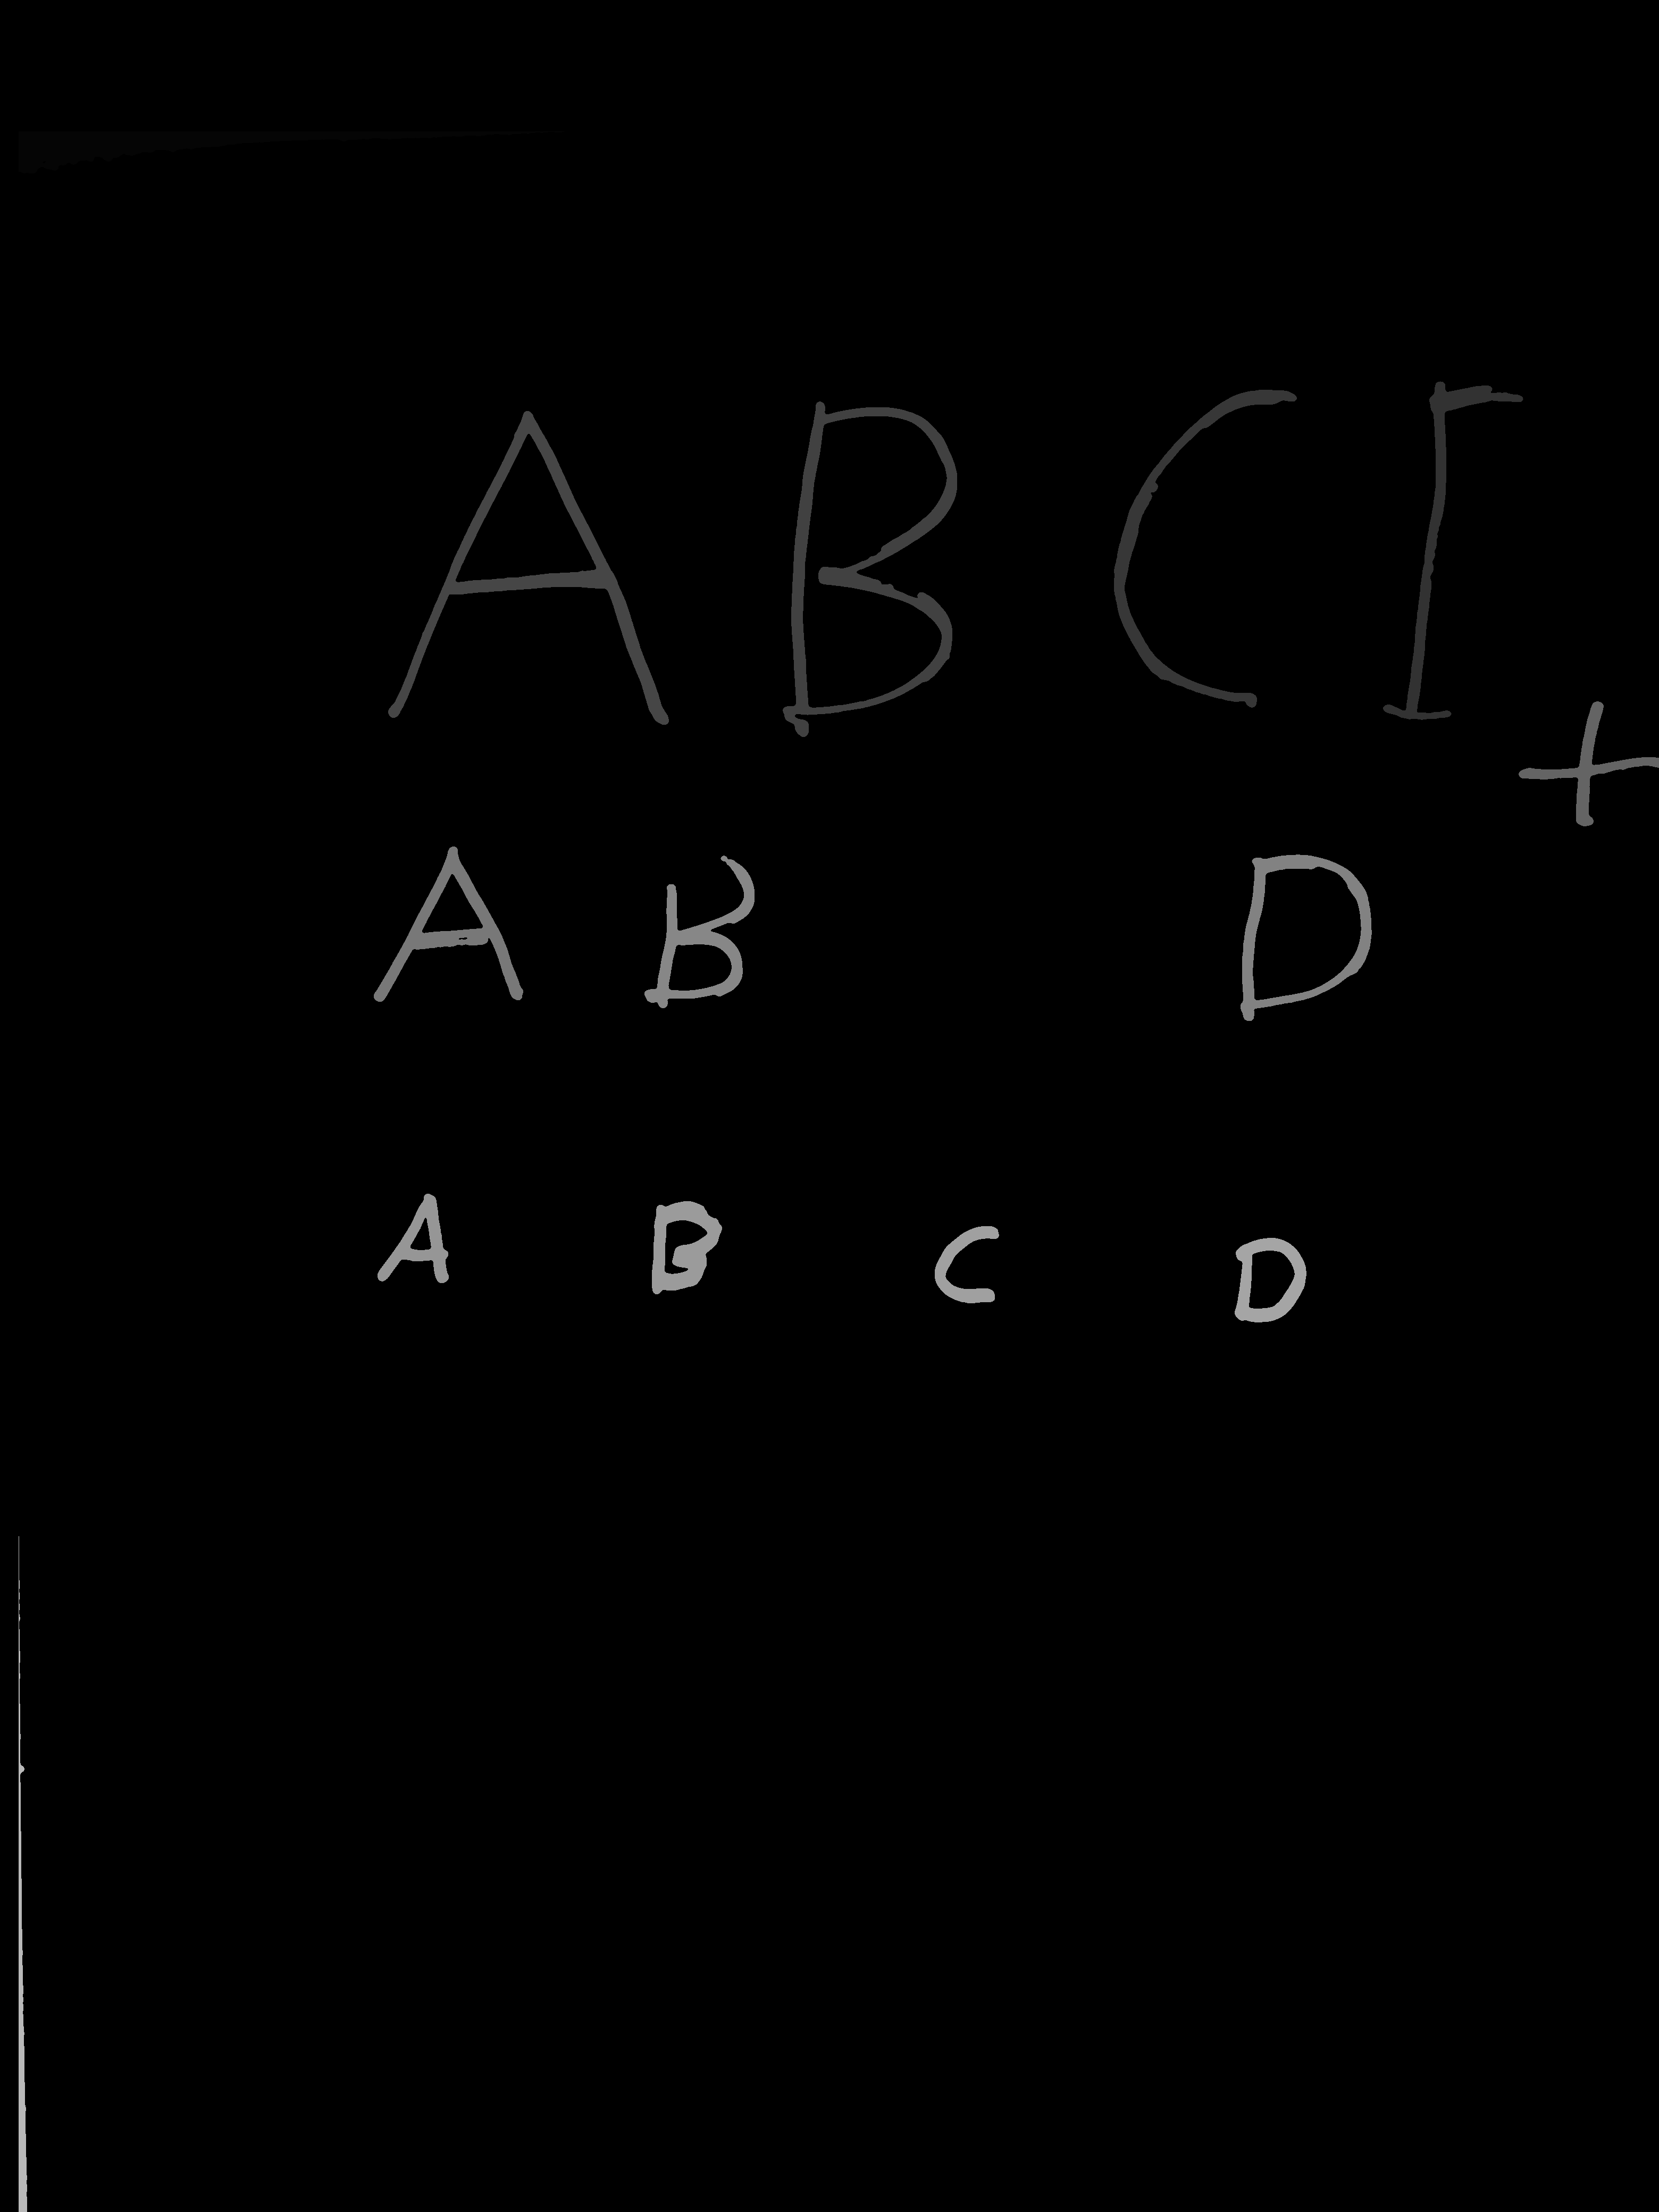 A B C
+
A B D
A B C D